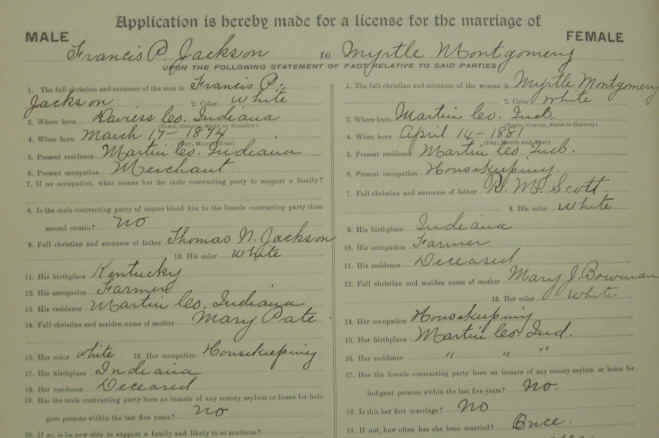 Application is hereby made for a license for the marriage of
MALE
FEMALE
Francis P. Jackson to Myrtle Montgomery
UPON THE FOLLOWING STATEMENT OF FACTS RELATIVE TO SAID PARTIES
1. The full christian and surname of the man is Francis P.
Jackson 2. Color White
3. Where born Daviess Co. Indiana
4. When born March 17 - 1874
5. Present residence Martin Co. Indiana
6. Present occupation Merchant
7. If no occupation, what means has the male contracting party to support a family?
8. Is the male contracting party of nearer blood kin to the female contracting party than
second cousin? No
9. Full christian and surname of father Thomas N. Jackson
10. His color White
11. His birthplace Kentucky
12. His occupation Farmer
13. His residence Martin Co. Indiana
14. Full christian and maiden name of mother Mary Pate
15. Her color White 16. Her occupation Housekeeping
17. Her birthplace Indiana
18. Her residence Deceased
19. Has the male contracting party been an inmate of any county asylum or home for indi-
gent persons within the last five years? No
1. The full christian and surname of the woman is Myrtle Montgomery
2. Color White
3. Where born Martin Co. Ind.
4. When born April 14 - 1881
5. Present residence Martin Co. Ind.
6. Present occupation Housekeeping
7. Full christian and surname of father Scott
8. His color White
9. His birthplace Indiana
10. His occupation Farmer
11. His residence Deceased
12. Full christian and maiden name of mother Mary J. Bowman
13. Her color White
14. Her occupation Housekeeping
15. Her birthplace Martin Co. Ind.
16. Her residence " " "
17. Has the female contracting party been an inmate of any county asylum or home for
indigent persons within the last five years? No
18. Is this her first marriage? No
19. If not, how often has she been married? Once